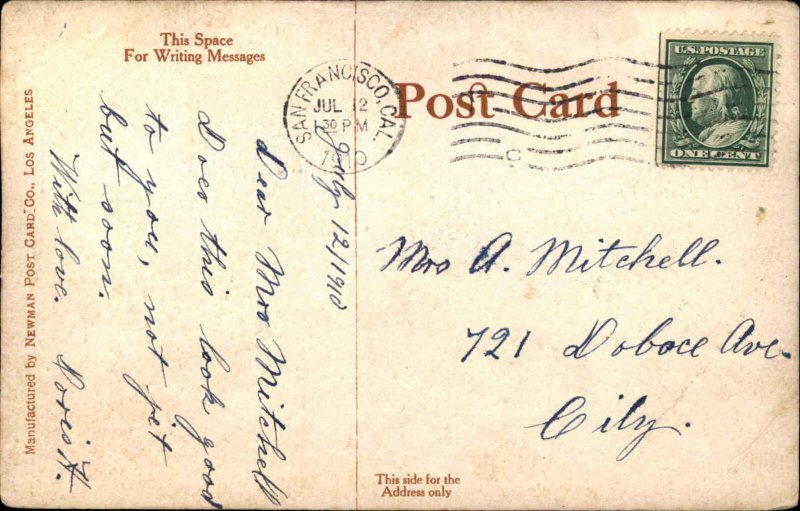 This Space
For Writing Messages
Manufactured by NEWMAN POST CARD CO., LOS ANGELES
July 12/1910
Dear Mrs Mitchell
Does this look good
to you, not yet
but soon.
With love.
Post Card
SAN FRANCISCO, CAL.
JUL 12
1 30 PM
1910
U.S. POSTAGE
ONE CENT
Mrs A. Mitchell.
721 Duboce Ave.
City.
This side for the
Address only